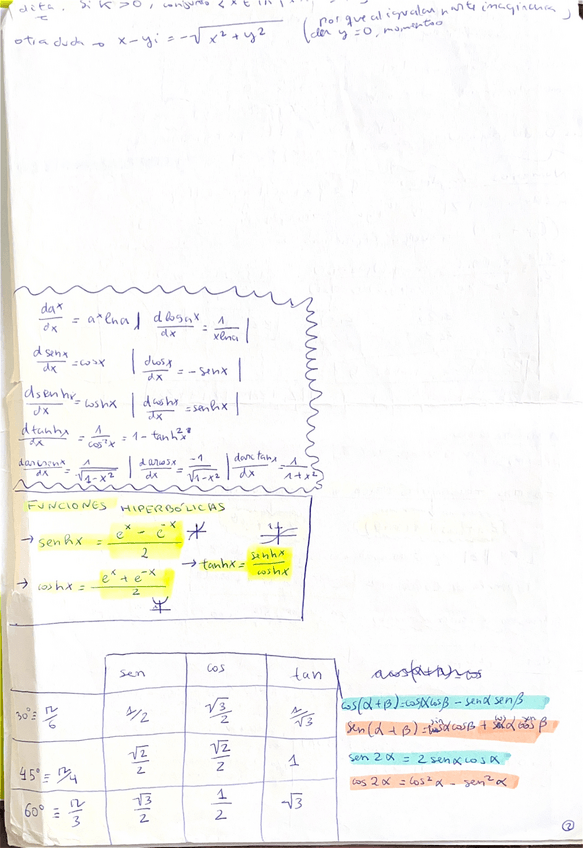 dita. Si K > 0, conjunto
otra duda → x - yi = -√(x² + y²) (porque al igualar parte imaginaria
der y = 0, momentos
da^x/dx = a^x ln a | d log_a x/dx = 1/(x ln a) |
d sen x/dx = cos x | d cos x/dx = - sen x |
d senh x/dx = cosh x | d cosh x/dx = senh x |
d tanh x/dx = 1/cos² x = 1 - tanh² x
d arcsen x/dx = 1/√(1-x²) | d arcos x/dx = -1/√(1-x²) | d arctan x/dx = 1/(1+x²)
FUNCIONES HIPERBÓLICAS
→ senh x = (e^x - e^-x)/2
→ tanh x = senh x/cosh x
→ cosh x = (e^x + e^-x)/2
sen cos tan
30° ≡ π/6 1/2 √3/2 1/√3
45° ≡ π/4 √2/2 √2/2 1
60° ≡ π/3 √3/2 1/2 √3
cos(α+β) = cosα cosβ - senα senβ
sen(α+β) = sin α cosβ + cos α sen β
sen 2α = 2 senα cosα
cos 2α = cos² α - sen² α
2